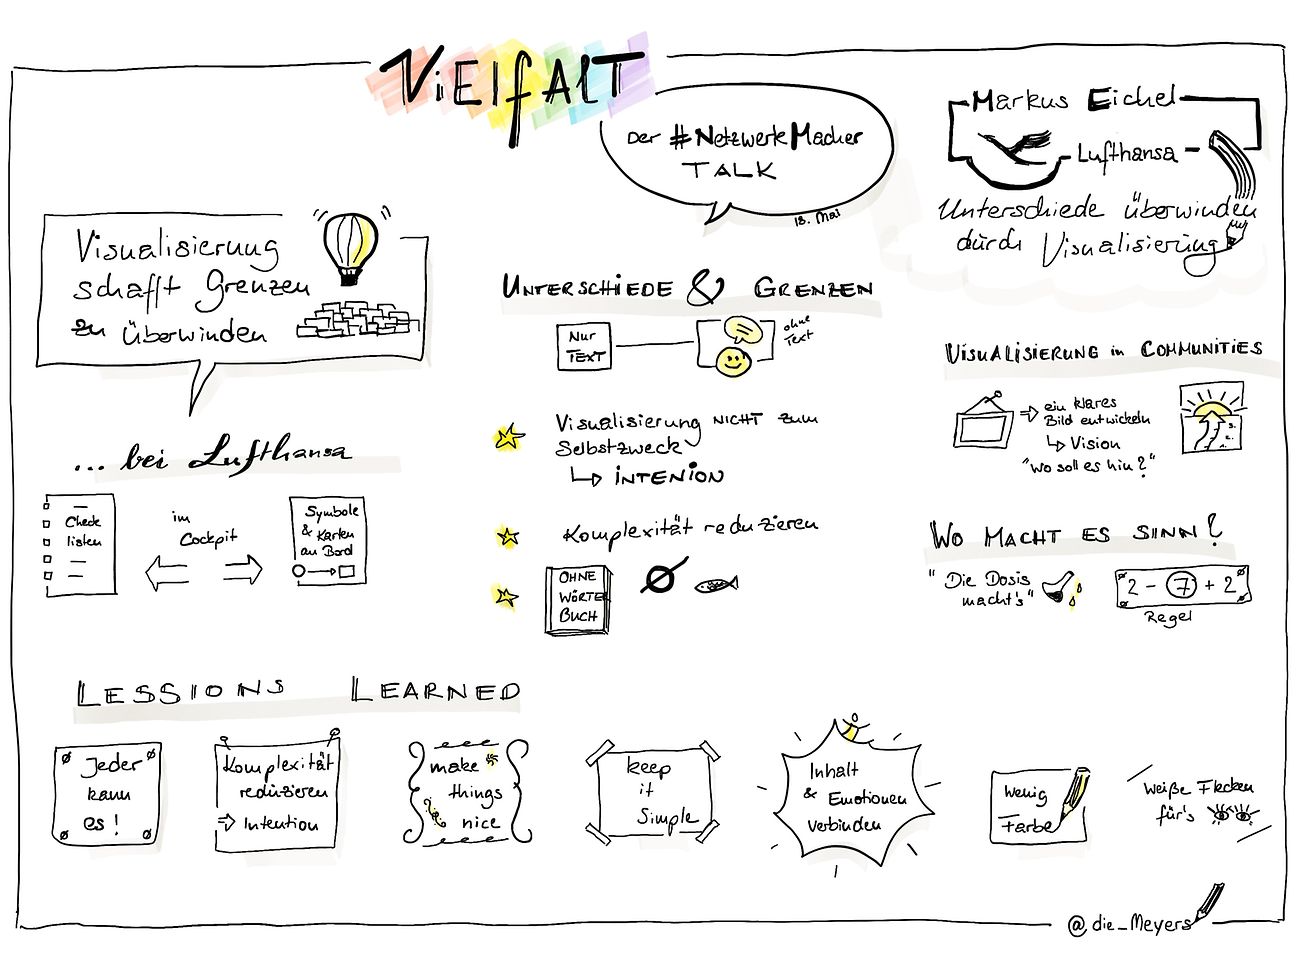 ViElfAlT
Der #NetzwerkMacher
TALK
13. Mai
Markus Eichel
Lufthansa
Unterschiede überwinden
durch Visualisierung
Visualisierung
schafft Grenzen
zu überwinden
... bei Lufthansa
Check
listen
im
Cockpit
Symbole
& Karten
an Bord
UNTERSCHIEDE & GRENZEN
Nur
TEXT
ohne
Text
Visualisierung NICHT zum
Selbstzweck
↳ INTENION
Komplexität reduzieren
OHNE
WÖRTER
BUCH
VISUALISIERUNG in COMMUNITIES
⇒ ein klares
Bild entwickeln
↳ Vision
"Wo soll es hin?"
WO MACHT ES SINN?
"Die Dosis
macht's"
2 - 7 + 2
Regel
LESSIONS LEARNED
Jeder
kann
es!
Komplexität
reduzieren
⇒ Intention
make
things
nice
keep
it
Simple
Inhalt
& Emotionen
verbinden
wenig
Farbe
weiße Flecken
für's
@die_Meyers